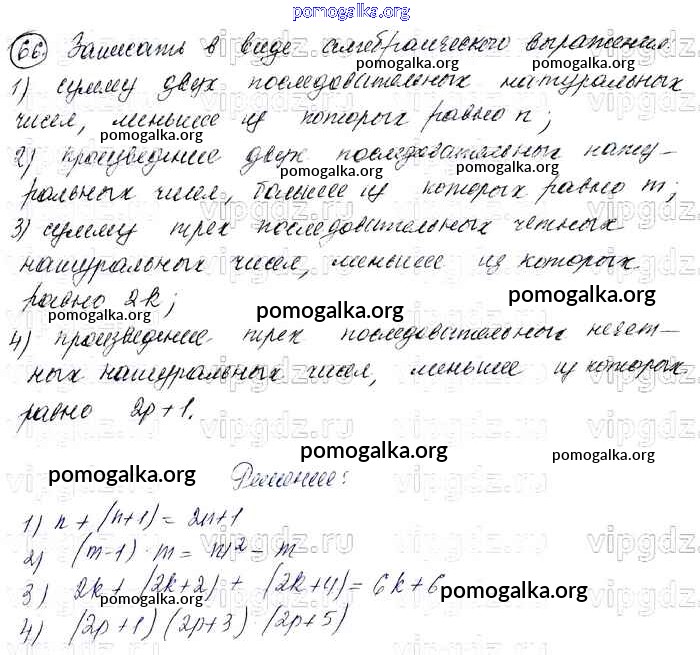 pomogalka.org
66. Записать в виде алгебраического выражения:
1) сумму двух последовательных натуральных
чисел, меньшее из которых равно n;
pomogalka.org pomogalka.org
2) произведение двух последовательных нату-
pomogalka.org
ральных чисел, большее из которых равно m;
3) сумму трех последовательных четных
натуральных чисел, меньшее из которых
равно 2k;
pomogalka.org pomogalka.org
4) произведение трех последовательных нечет-
ных натуральных чисел, меньшее из которых
равно 2p+1.
pomogalka.org
pomogalka.org pomogalka.org pomogalka.org
Решение:
1) n + (n+1) = 2n+1
pomogalka.org
2) (m-1) · m = m² - m
3) 2k + (2k+2) + (2k+4) = 6k+6
pomogalka.org pomogalka.org
4) (2p+1) (2p+3) · (2p+5)